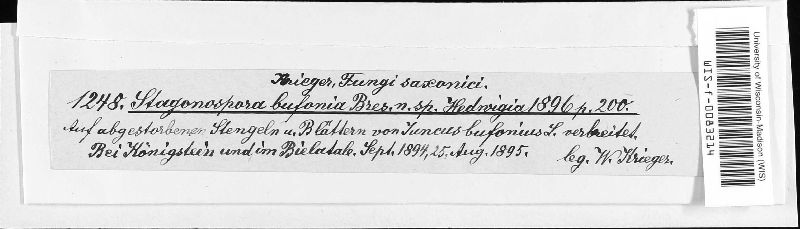 Krieger, Fungi saxonici.
1248. Stagonospora bufonia Bres. n. sp. Hedwigia 1896 p. 200.
Auf abgestorbenen Stengeln u. Blättern von Juncus bufonius L. verbreitet.
Bei Königstein und im Bielatale. Sept. 1894, 25. Aug. 1895. leg. W. Krieger.
University of Wisconsin-Madison (WIS)
WIS-f-0083214